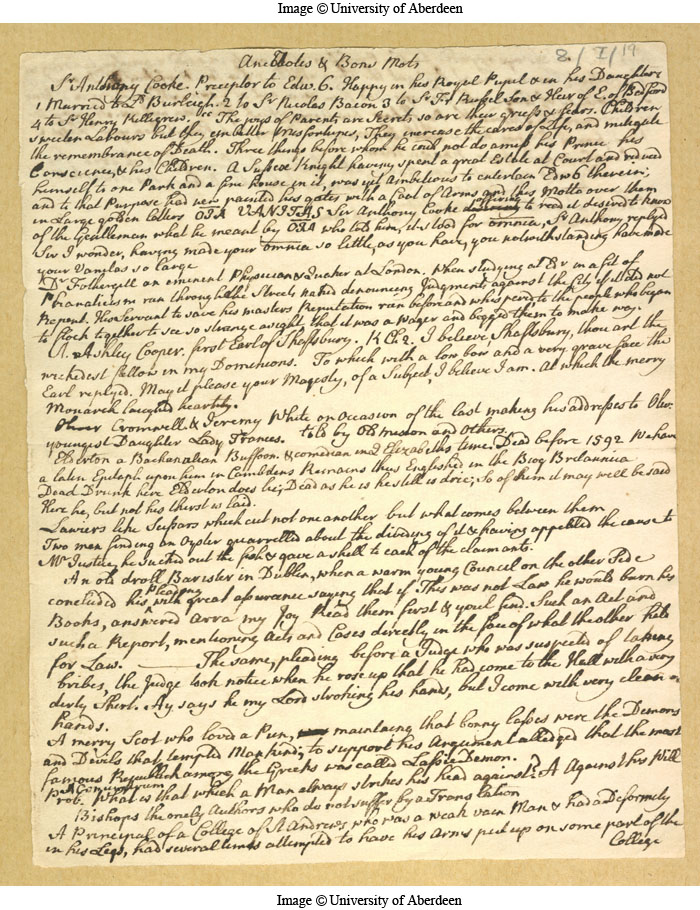 Image © University of Aberdeen
8/I/19
Anecdotes & Bons Mots
Sr Anthony Cooke. Preceptor to Edw. 6. Happy in his Royal Pupil & in his Daughters
1 Married to Ld Burleigh. 2 to Sr Nicolas Bacon 3 to Sr Fr Russel Son & Heir of E. of Bedford
4 to Sr Henry Killegrew. The joys of Parents are Secret, so are their griefs & fears. Children
sweeten Labours but they embitter misfortunes, They increase the cares of Life, and mitigate
the remembrance of Death. Three things before whom he could not do amiss his Prince his
Conscience, & his Children. A Sussex Knight having spent a great Estate at Court and reduced
himself to one Park and a fine house in it, was yet Ambitious to entertain Edw 6 therein;
and to that Purpose had new painted his gates with a Coat of Arms and this Motto over them
in Large golden Letters OIA VANITAS Sir Anthony Cooke offering to read it desired to know
of the Gentleman what he meant by OIA who told him, it stood for omnia, Sr Anthony replyed
Sir I wonder, having made your omnia so little, as you have, you notwithstanding have made
your Vanitas so large
Dr Fothergill an eminent Physician & Quaker at London. When studying at Edr in a fit of
Phanaticism ran through the Streets naked denouncing Judgments against the City if it did not
Repent. His servant to save his masters Reputation ran before and whispered to the people who began
to flock together to see so strange a sight that it was a wager and begged them to make way.
A. Ashley Cooper. first Earl of Shaftsbury. K Ch 2. I believe Shaftsbury, thou art the
wickedest fellow in my Dominions. To which with a low bow and a very grave face the
Earl replyed. May it please your Majesty, of a Subject, I believe I am. At which the merry
Monarch laughed heartily.
Oliver Cromwell & Jeremy White on Occasion of the last making his addresses to Oliv:
youngest Daughter Lady Frances. told by Oldmixon and Others.
Elderton a Bachanalian Buffoon & comedian in Q Elizabeths time. Dead before 1592 We have
a latin Epitaph upon him in Cambdens Remains thus Englished in the Biog Britannica
Dead Drunk here Elderton does lie; Dead as he is he still is dric; So of him it may well be said
Here he, but not his thirst is laid.
Lawiers like Scissars which cut not one another but what comes between them
Two men finding an Oyster quarrelled about the dividing of it & having appealed the cause to
Mr Justice, he sucked out the fish & gave a shell to each of the claimants.
An old droll Barister in Dublin, when a warm young Council on the other Side
concluded his Pleading with great assurance saying that if This was not Law he would burn his
Books, answered Arra my Joy Read them first & you'l find Such an Act and
such a Report, mentioning Acts and Cases directly in the face of what the other held
for Law. —— The same, pleading before a Judge who was suspected of taking
bribes, the Judge took notice when he rose up that he had come to the Hall with a very
dirty Shirt. Ay says he my Lord stroking his hands, but I come with very clean
hands.
A merry Scot who loved a Pun, maintaing that bonny Lasses were the Demons
and Devils that tempted Mankind; to support his Argument alledged that the most
famous Republick among the Greeks was called Lassie Demon.
Prob. A Conundrum What is that which a Man always strikes his head against? A Against his Will
Bishops the onely Authors who do not suffer by a Translation
A Principal of a College of St Andrews who was a weak vain Man & had a Deformity
in his Legs, had several times attempted to have his Arms put up on some part of the
College
Image © University of Aberdeen